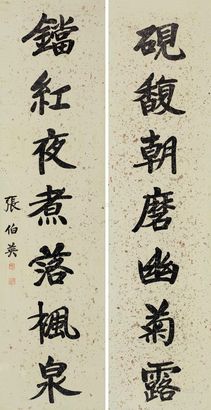 硯馥朝磨幽菊露
鐺紅夜煮落楓泉
張伯英